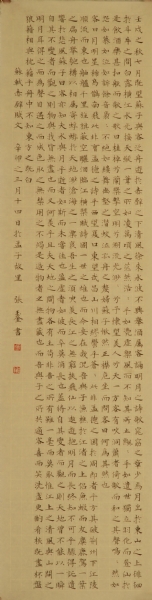 壬戌之秋七月既望蘇子與客泛舟遊於赤壁之下清風徐來水波不興舉酒屬客誦明月之詩歌窈窕之章少焉月出於東山之上徘徊
於斗牛之間白露橫江水光接天縱一葦之所如凌萬頃之茫然浩浩乎如馮虛御風而不知其所止飄飄乎如遺世獨立羽化而登仙於
是飲酒樂甚扣舷而歌之歌曰桂棹兮蘭槳擊空明兮泝流光渺渺兮予懷望美人兮天一方客有吹洞簫者倚歌而和之其聲嗚嗚然如
怨如慕如泣如訴餘音嫋嫋不絕如縷舞幽壑之潛蛟泣孤舟之嫠婦蘇子愀然正襟危坐而問客曰何為其然也
客曰月明星稀烏鵲南飛此非曹孟德之詩乎西望夏口東望武昌山川相繆鬱乎蒼蒼此非孟德之困於周郎者乎方其破荊州下江陵
順流而東也舳艫千里旌旗蔽空釃酒臨江橫槊賦詩固一世之雄也而今安在哉況吾與子漁樵於江渚之上侶魚蝦而友麋鹿駕
一葉之扁舟舉匏樽以相屬寄蜉蝣於天地渺滄海之一粟哀吾生之須臾羨長江之無窮挾飛仙以遨遊抱明月而長終知不可乎驟得託遺
響於悲風蘇子曰客亦知夫水與月乎逝者如斯而未嘗往也盈虛者如彼而卒莫消長也蓋將自其變者而觀之則天地曾不能以一瞬
自其不變者而觀之則物與我皆無盡也而又何羨乎且夫天地之間物各有主苟非吾之所有雖一毫而莫取惟江上之清風與山間之
明月耳得之而為聲目遇之而成色取之無禁用之不竭是造物者之無盡藏也而吾與子之所共適客喜而笑洗盞更酌肴核既盡杯盤
狼籍相與枕藉乎舟中不知東方之既白
蘇軾赤壁賦文 辛卯之月十四日於孟子故里 張 書